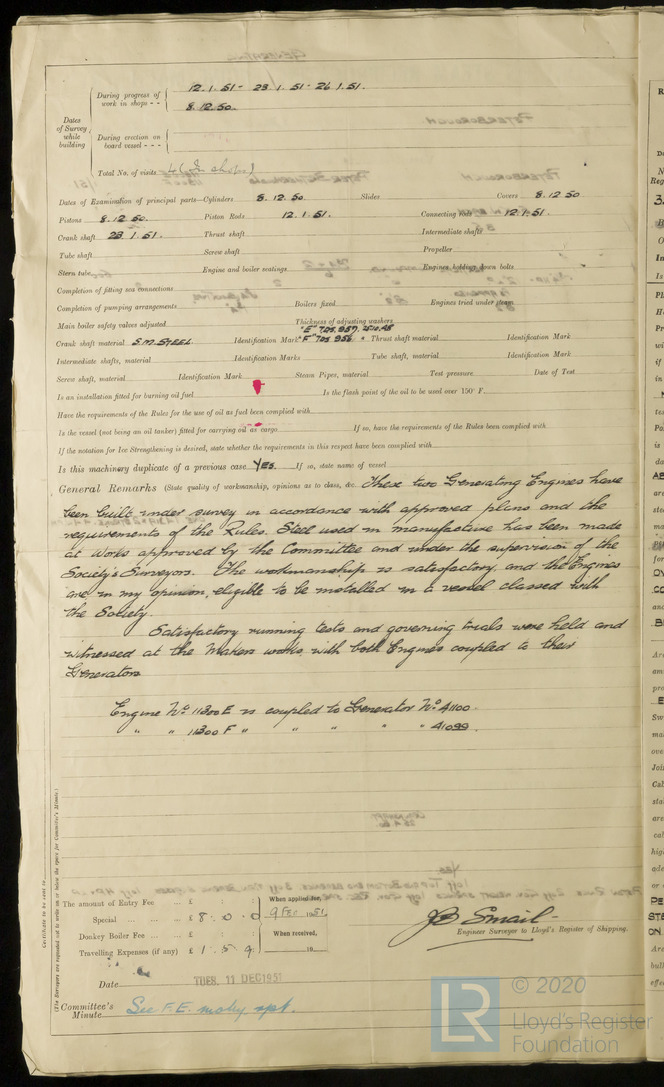 During progress of work in shops - - 12.1.51 - 23.1.51 - 26.1.51.
8.12.50.
Dates of Survey while building
During erection on board vessel - - -
Total No. of visits 4 (In shops)
Dates of Examination of principal parts—Cylinders 8.12.50. Slides Covers 8.12.50
Pistons 8.12.50. Piston Rods 12.1.51. Connecting rods 12.1.51.
Crank shaft 23.1.51. Thrust shaft Intermediate shafts
Tube shaft Screw shaft Propeller
Stern tube Engine and boiler seatings Engines holding down bolts
Completion of fitting sea connections
Completion of pumping arrangements Boilers fixed Engines tried under steam
Main boiler safety valves adjusted Thickness of adjusting washers
Crank shaft material S.M. STEEL. Identification Mark "E" 725.957. 25.10.48 "F" 725 956 " Thrust shaft material Identification Mark
Intermediate shafts, material Identification Marks Tube shaft, material Identification Mark
Screw shaft, material Identification Mark Steam Pipes, material Test pressure Date of Test
Is an installation fitted for burning oil fuel Is the flash point of the oil to be used over 150° F.
Have the requirements of the Rules for the use of oil as fuel been complied with
Is the vessel (not being an oil tanker) fitted for carrying oil as cargo If so, have the requirements of the Rules been complied with
If the notation for Ice Strengthening is desired, state whether the requirements in this respect have been complied with
Is this machinery duplicate of a previous case YES. If so, state name of vessel
General Remarks (State quality of workmanship, opinions as to class, &c. These two Generating Engines have
been built under survey in accordance with approved plans and the
requirements of the Rules. Steel used in manufacture has been made
at Works approved by the Committee and under the supervision of the
Society's Surveyors. The workmanship is satisfactory, and the Engines
are, in my opinion, eligible to be installed in a vessel classed with
the Society.
Satisfactory running tests and governing trials were held and
witnessed at the Makers works with both Engines coupled to their
Generators
Engine No. 11300 E is coupled to Generator No. 41100.
" " 11300 F " " " " " 41099.
The amount of Entry Fee ... £ : :
Special ... ... ... £ 8 : 0 : 0
Donkey Boiler Fee ... ... £ : :
Travelling Expenses (if any) £ 1 : 5 : 9
When applied for,
9 FEB 1951
When received,
19
JB Smail
Engineer Surveyor to Lloyd's Register of Shipping.
Date TUES. 11 DEC 1951
Committee's Minute See F.E. mchy rpt.
Certificate to be sent to
(The Surveyors are requested not to write on or below the space for Committee's Minute.)
LR
© 2020
Lloyd's Register
Foundation